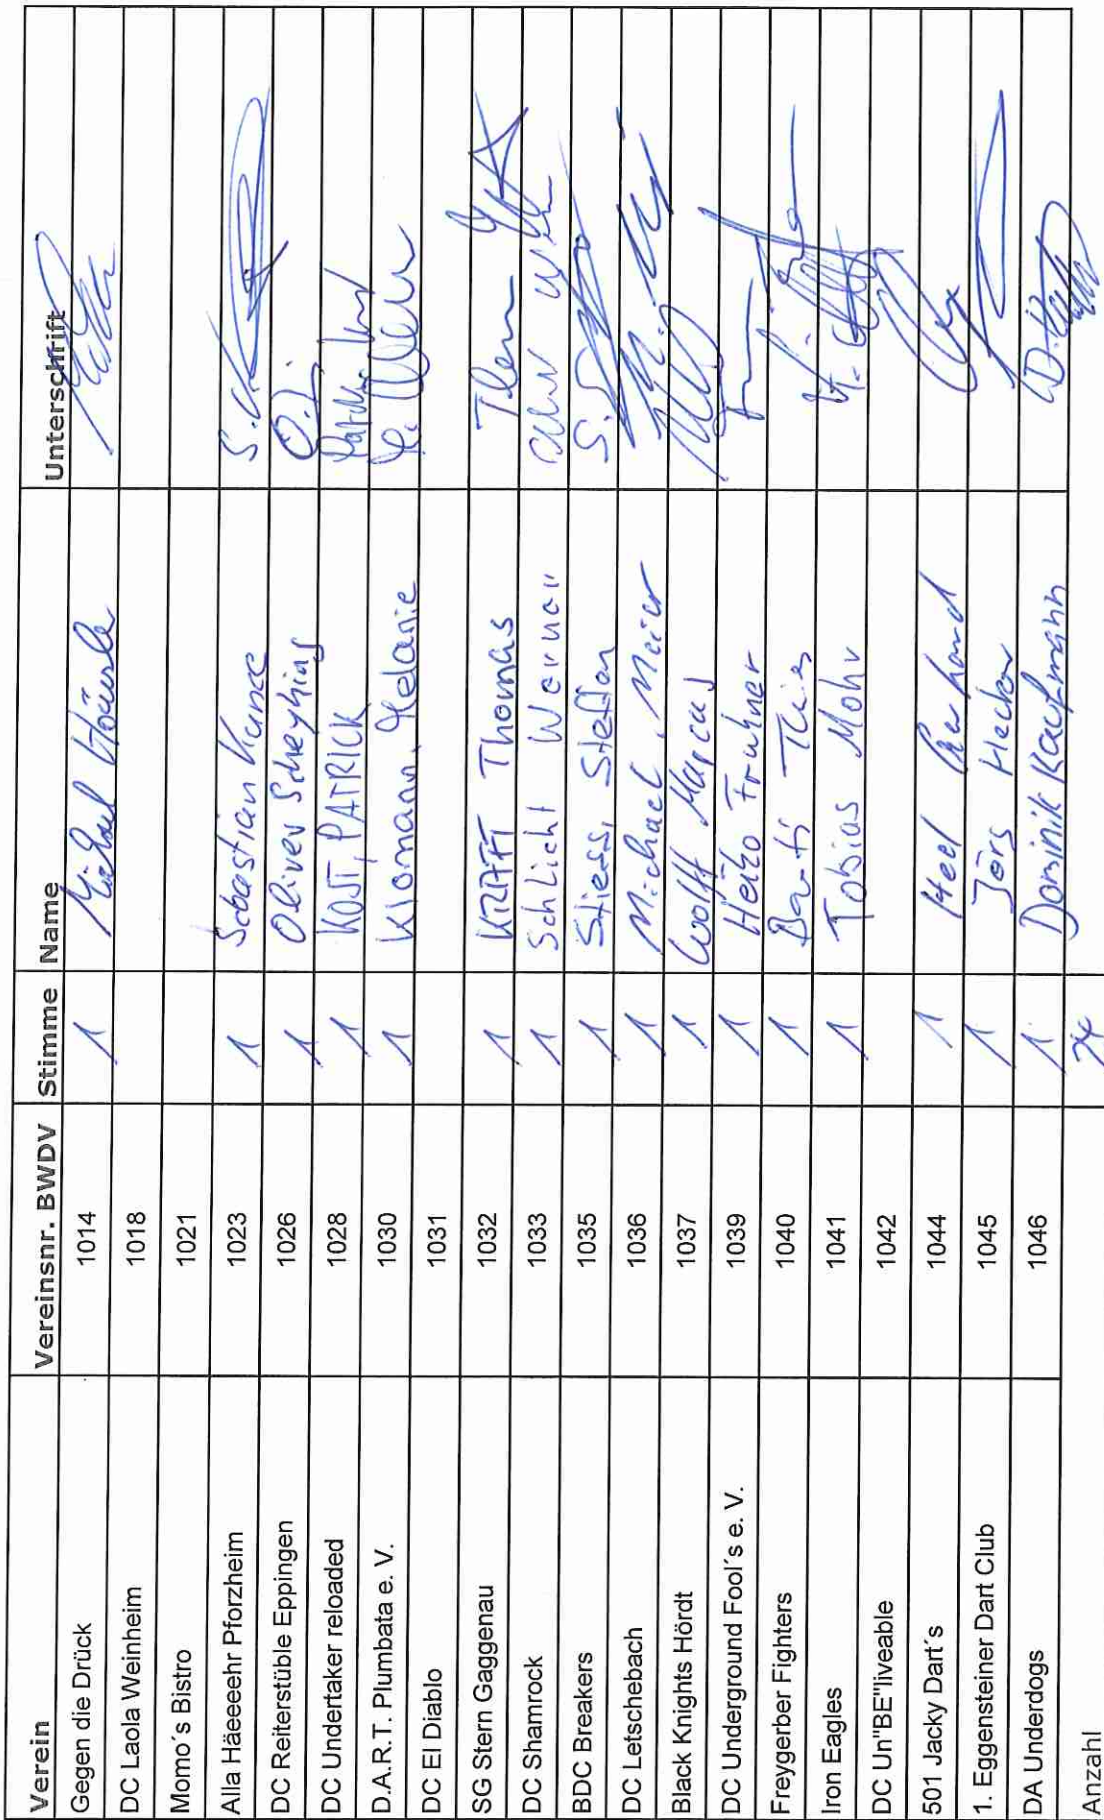 Verein Vereinsnr. BWDV Stimme Name Unterschrift
Gegen die Drück 1014 1 Michael Häusle
DC Laola Weinheim 1018
Momo´s Bistro 1021
Alla Häeeeehr Pforzheim 1023 1 Sebastian Kunze
DC Reiterstüble Eppingen 1026 1 Oliver Scheyhing
DC Undertaker reloaded 1028 1 KOST, PATRICK
D.A.R.T. Plumbata e. V. 1030 1 Klomann, Melanie
DC El Diablo 1031
SG Stern Gaggenau 1032 1 KRAFT Thomas
DC Shamrock 1033 1 Schlicht Werner
BDC Breakers 1035 1 Stiess, Steffen
DC Letschebach 1036 1 Michael Meier
Black Knights Hördt 1037 1 Wolff Marcus
DC Underground Fool´s e. V. 1039 1 Heiko Fruhner
Freygerber Fighters 1040 1 Thies
Iron Eagles 1041 1 Tobias Mohr
DC Un"BE"liveable 1042
501 Jacky Dart´s 1044 1 Heel
1. Eggensteiner Dart Club 1045 1 Jörg Hecker
DA Underdogs 1046 1 Dominik Kaufmann
Anzahl